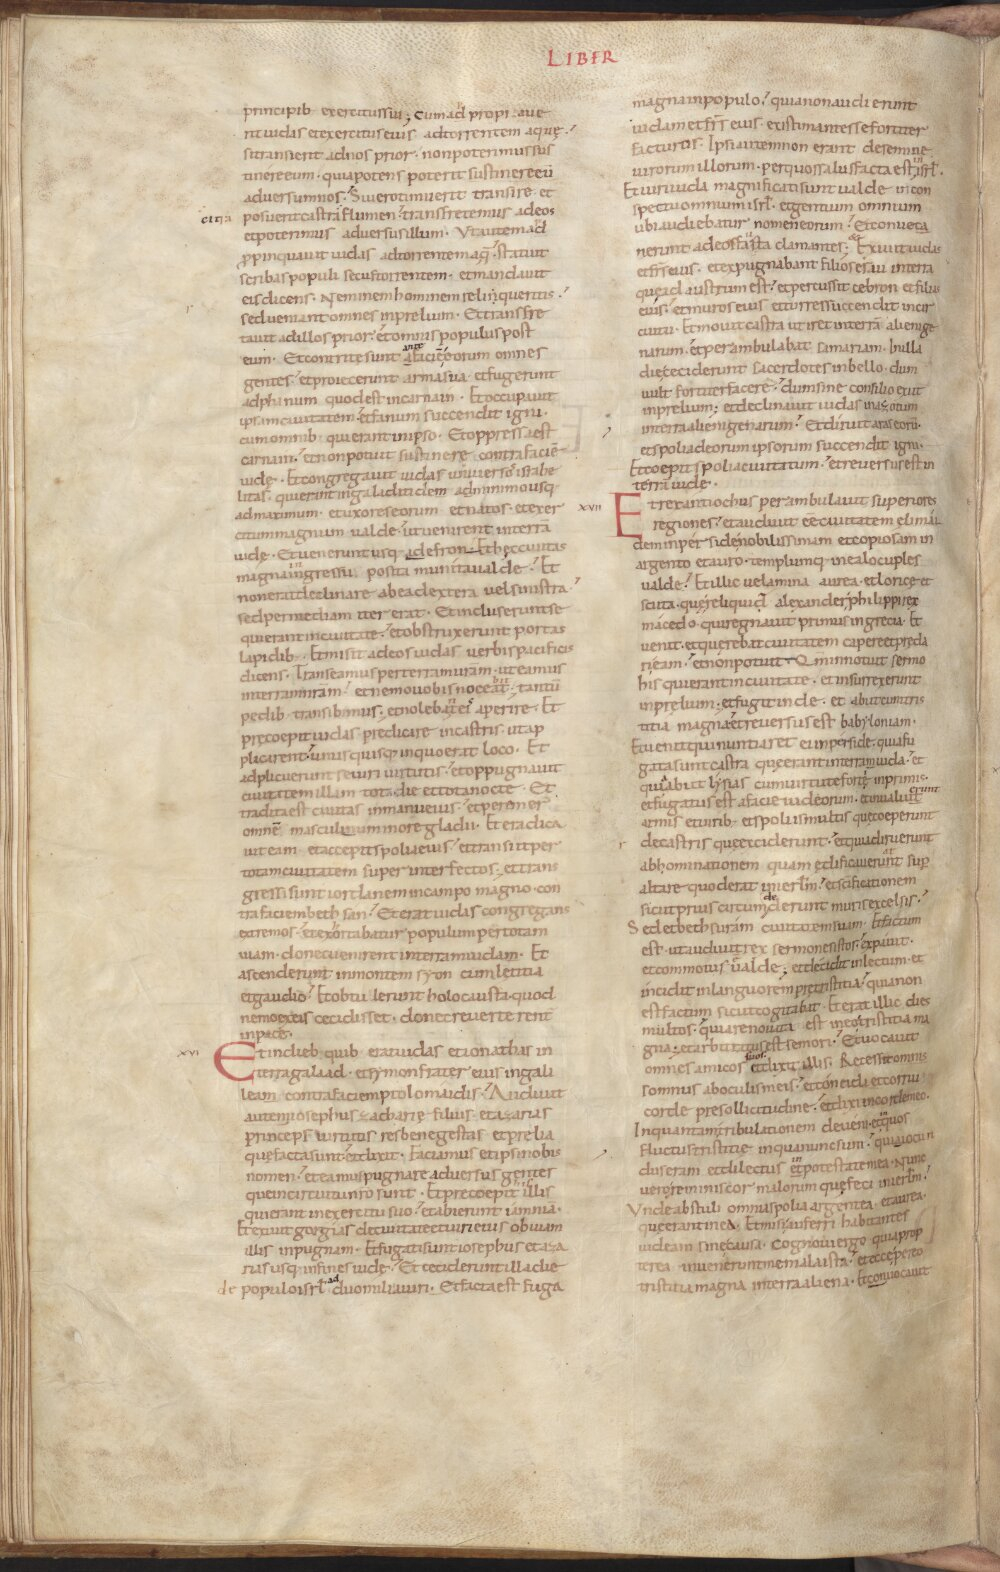 LIBER
principib exercitus sui; Cum ad propi aue
rit iudas et exercitus eius ad torrentem aquę.
si transierit ad nos prior. non poterimus sus
tinere eum. quia potens poterit sustinere eū
aduersum nos. Si uero timuerit transire. et
citra
posuerit castra flumen. transfretemus ad eos
et poterimus aduersus illum. Vt autem ad
propinquauit iudas ad torrentem aq. statuit
scribas populi secus torrentem. et mandauit
eis dicens. Neminem hominem relinqueritis.
sed ueniant omnes in prelium. Et transfre
tauit ad illos prior. et omnis populus post
eum. Et contrite sunt ante a facię eorum omnes
gentes. et proiecerunt arma sua. et fugerunt
ad phanum quod est in carnain. Et occupauit
ipsam ciuitatem. et fanum succendit igni.
cum omnib qui erant in ipso. Et oppressa est
carnain. et non potuit sustinere contra faciē
iudę. Et congregauit iudas uniuersos israhe
litas. qui erant in galaditidem a minimo usq.
ad maximum. et uxores eorum et natos. et exer
citum magnum ualde. ut uenirent in terrā
iudę. Et uenerunt usq. ad efron. Et hęc ciuitas
magna in ingressu posita munita ualde. Et
non erat declinare ab ea dextera uel sinistra.
sed per mediam iter erat. Et incluserunt se
qui erant in ciuitate. et obstruxerunt portas
lapidib. Et misit ad eos iudas uerbis pacificis
dicens. Transeamus per terram uram. ut eamus
in terram nram. et nemo uobis nocebit. tantū
pedib transibimus. et nolebat eis aperire. Et
pręcoepit iudas predicare in castris. ut ap
plicarent. unusquisq. in quo erat loco. Et
adplicuerunt se uiri uirtutis. et oppugnauit
ciuitatem illam tota die et tota nocte. Et
tradita est ciuitas in manu eius. et peremer
omnē masculinum in ore gladii. Et eradica
uit eam. et accepit spolia eius. et transiit per
totam ciuitatem super interfectos. et trans
gressi sunt iordanem in campo magno. con
tra faciem bethsan. Et erat iudas congregans
extremos. et exortabatur populum per totam
uiam. donec uenirent in terram iudam. Et
ascenderunt in montem syon cum letitia
et gaudio. Et obtulerunt holocausta. quod
nemo ex eis cecidisset. donec reuerterent
in pace.
xvi
Et in dieb. quib erat iudas et ionathas in
terra galaad. et symon frater eius in gali
leam contra faciem ptolomaidis. Audiuit
autem iosephus zacharię filius. et azarias
princeps uirtutis res bene gestas et prelia
quę facta sunt. et dixit. Faciamus et ipsi nobis
nomen. et eamus pugnare aduersus gentes
que in circuitu nro sunt. Et precoepit illis
qui erant in exercitu suo. et abierunt iamnia.
Et exiuit gorgias de ciuitate et uiri eius obuiam
illis in pugnam. Et fugati sunt iosephus et aza
rias usq. in fines iudę. Et ceciderunt illa die
de populo isrl ad duo milia uiri. Et facta est fuga
magna in populo. quia non audierunt
iudam et frs eius. existimantes se fortiter
facturos. Ipsi autem non erant de semine
uirorum illorum. per quos salus facta est in isrl.
Et uiri iuda magnificati sunt ualde in con
spectu omnium isrl. et gentium omnium
ubi audiebatur nomen eorum. Et conuene
nerunt ad eos fausta clamantes. Et exiuit iudas
et frs eius. et expugnabant filios esau in terra
que ad austrum est. et percussit cebron et filias
eius. et muros eius et turres succendit incir
cuitu. Et mouit castra ut iret in terrā alienige
narum. et perambulabat samariam. In illa
die ceciderunt sacerdotes in bello. dum
uult fortiter facere. dum sine consilio exiit
in prelium; et declinauit iudas in azotum
in terra alienigenarum. Et diruit aras eorū.
et spolia deorum ipsorum succendit igni.
Et coepit spolia ciuitatum. et reuersus est in
terrā iudę.
xvii
Et rex antiochus perambulauit superiores
regiones. et audiuit eē ciuitatem elimai
dem in perside nobilissimam et copiosam in
argento et auro. templumq. in ea locuples
ualde. Et illic uelamina aurea. et loricę et
scuta. quę reliquid alexander philippi rex
macedo. qui regnauit primus in grecia. Et
uenit. et querebat ciuitatem capere et preda
ri eam. et non potuit. Qm innotuit sermo
his qui erant in ciuitate. et insurrexerunt
in prelium. et fugit inde. et abiit cum tris
titia magna. et reuersus est babyloniam.
Et uenit qui nuntiaret ei in perside. quia fu
gata sunt castra quę erant in terram iuda. et
quia abiit lysias cum uirtute forti in primis.
et fugatus est a facie iudeorum. et inualuerunt
armis et uirib. et spoliis multis quę coeperunt
de castris que exciderunt. et quia diruerunt
abhominationem quam ędificauerant sup
altare quod erat in ierlm. et scificationem
sicut prius circumdederunt muris excelsis.
Sed et bethsuram ciuitatem suam. Et factum
est. ut audiuit rex sermones istos. expauit.
et commotus ualde; et decidit in lectum. et
incidit in languorem pre tristitia. quia non
est factum sicut cogitabat. Et erat illic dies
multos. quia renouata est in eo tristitia ma
gna. et arbitratus est se mori. Et uocauit
omnes amicos suos. et dixit illis. Recessit omnis
somnus ab oculis meis. et concidi et corrui
corde pre sollicitudine. et dixi in corde meo.
In quantam tribulationem deueni. et quos
fluctus tristitię in qua nunc sum. qui iocun
dus eram et dilectus in potestate mea. Nunc
uero reminiscor malorum que feci in ierlm.
Vnde abstuli omnia spolia argentea. et aurea.
quę erant in ea. Et misi auferri habitantes
iudeam sine causa. Cognoui ergo quia prop
terea inuenerunt me mala ista. et ecce pereo
tristitia magna in terra aliena. Et conuocauit